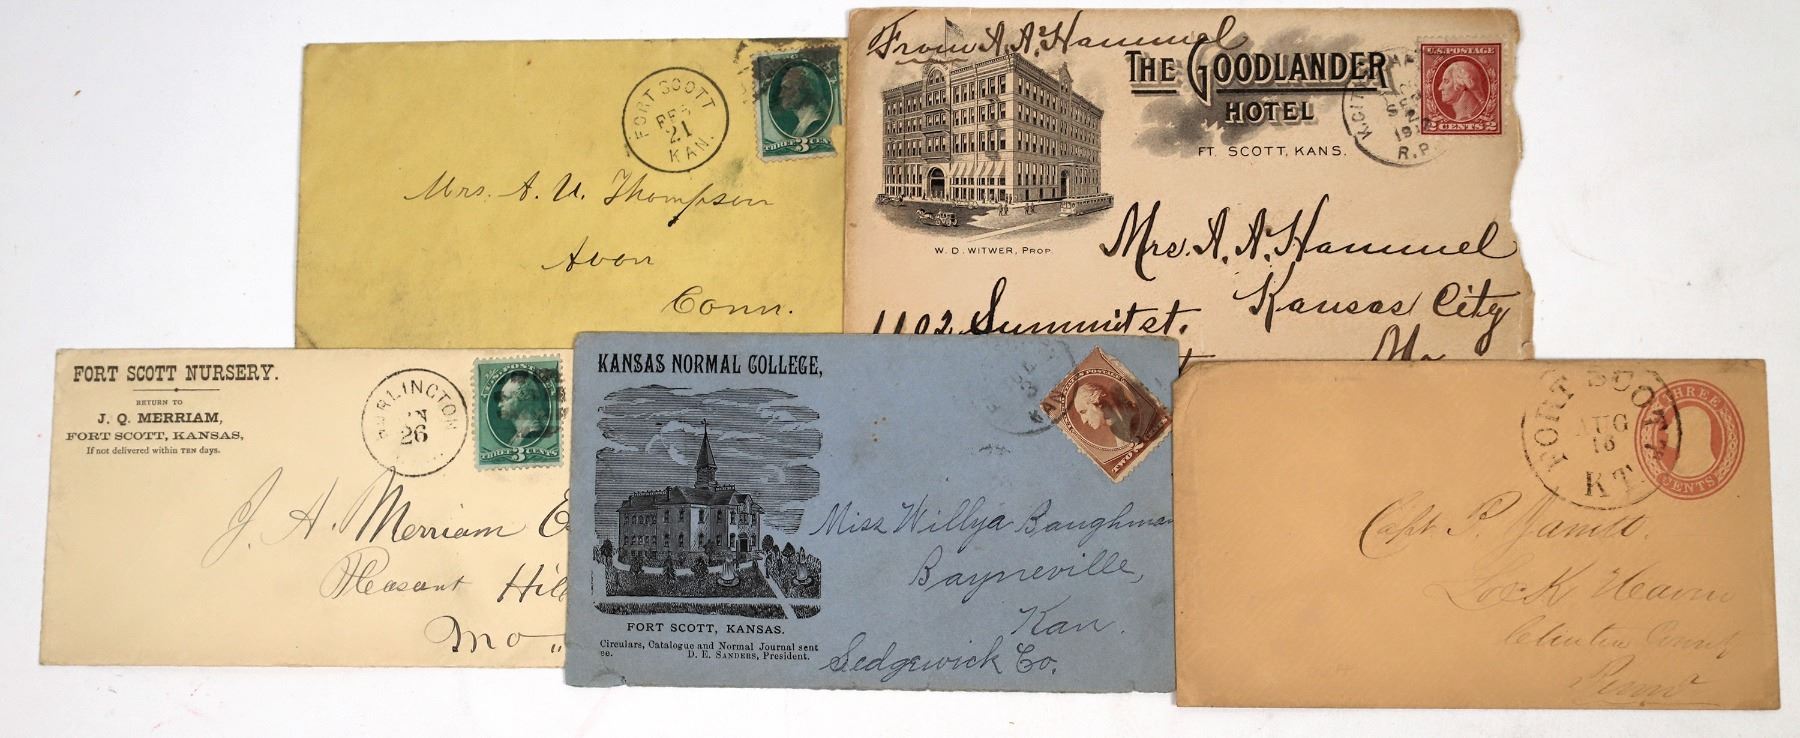 FORT SCOTT
FEB
21
KAN.
THREE 3 CEN
Mrs. A. U. Thompson
Avon
Conn.
From A. A. Hammel
THE GOODLANDER
HOTEL
FT. SCOTT, KANS.
W. D. WITWER, PROP.
U.S. POSTAGE
2 CENTS 2
R.P.
Mrs. A. A. Hammel
Kansas City
1102 Summit st.
Mo
FORT SCOTT NURSERY.
RETURN TO
J. Q. MERRIAM,
FORT SCOTT, KANSAS,
If not delivered within TEN days.
BURLINGTON
26
THREE 3 CENTS
J. A. Merriam
Pleasant Hil
Mo
KANSAS NORMAL COLLEGE,
FORT SCOTT, KANSAS.
Circulars, Catalogue and Normal Journal sent
ee. D. E. SANDERS, President.
TWO
Miss Willya Baughman
Bayneville,
Kan.
Sedgewick Co.
FORT SCOTT
AUG
16
K T
THREE
CENTS
Capt. P.
Lock Haven
Clinton County
Penn